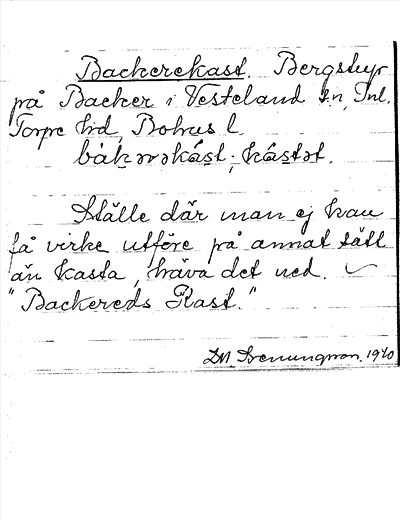 Backerekast. Bergstup
på Backer i Vesteland sn, Inl.
Torpe hd, Bohus l.
båkərəkást; kástət.
Ställe där man ej kan
få virke utföre på annat sätt
än kasta, häva det ned.
"Backereds Kast."
1940